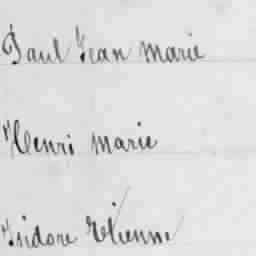 Paul Jean Marie
Henri Marie
Isidore Etienne